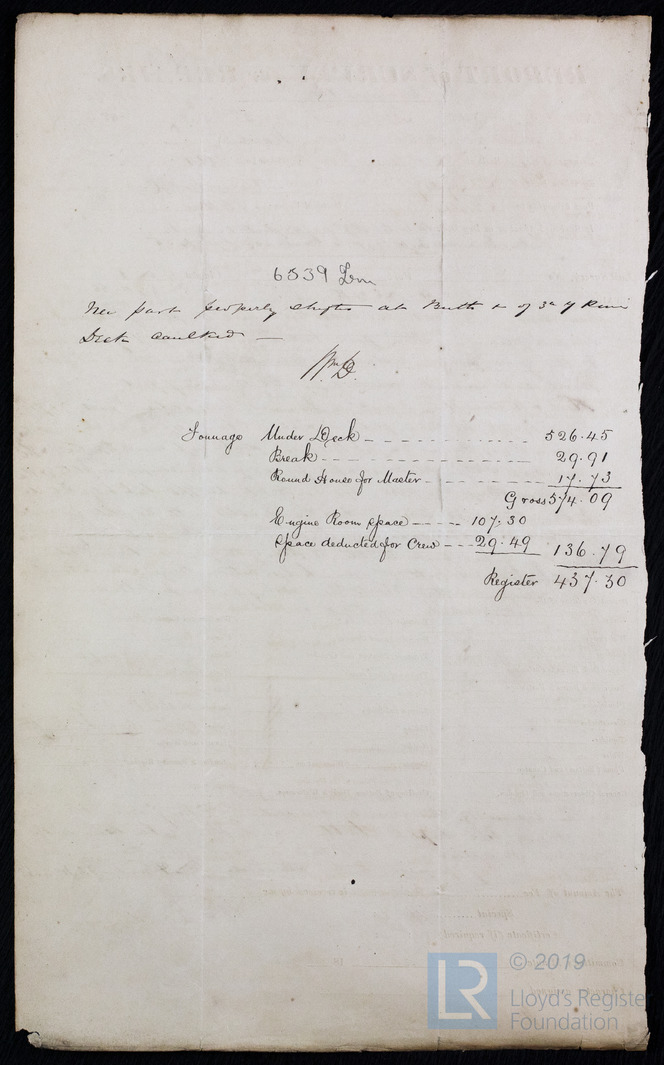 6539 Lon
New part properly shifted at Butts & of
Deck caulked —
Wm D.
Tonnage Under Deck 526.45
Break 29.91
Round House for Master 17.73
Gross 574.09
Engine Room space 107.30
Space deducted for Crew 29.49 136.79
Register 437.30
© 2019
LR Lloyd's Register
Foundation